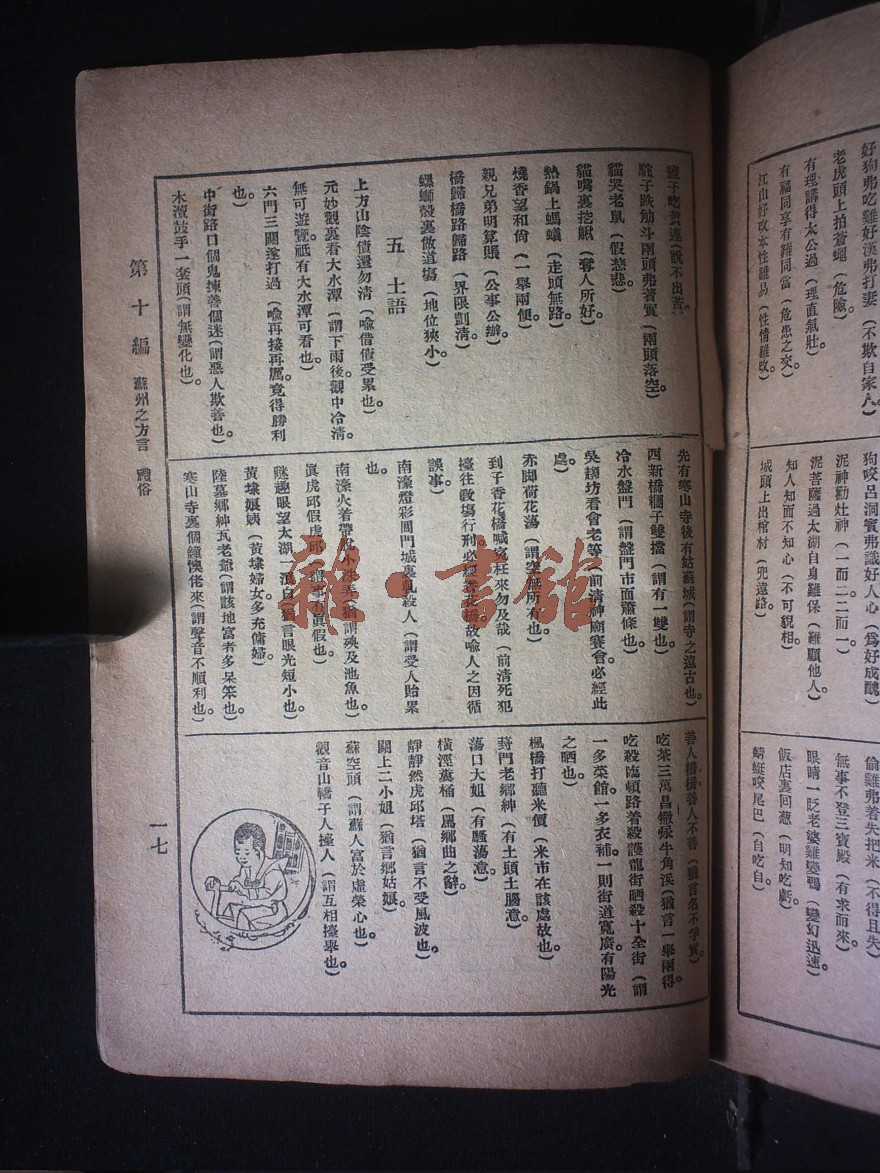 好狗弗吃雞好漢弗打妻（不欺自家人。）
老虎頭上拍蒼蠅（危險。）
有理講得太公過（理直氣壯。）
有福同享有難同當（危患之交。）
江山好改本性難易（性情難改。）
狗咬呂洞賓弗識好人心（爲好成醜。）
泥神勸灶神（一而二二而一。）
泥菩薩過太湖自身難保（難顧他人。）
知人知面不知心（不可貌相。）
城頭上出棺材（兜遠路。）
偷雞弗着失把米（不得且失）
無事不登三寶殿（有求而來）
眼睛一眨老婆雞變鴨（變幻迅速）
飯店裏回葱（明知吃虧。）
蜻蜓咬尾巴（自吃自。）
子吃黃連（說不出苦。）
駝子跌觔斗兩頭弗著實（兩頭落空。）
貓哭老鼠（假慈悲。）
貓嘴裏挖鰍（奪人所好。）
熱鍋上螞蟻（走頭無路。）
燒香望和尙（一舉兩便。）
親兄弟明算賬（公事公辦。）
橋歸橋路歸路（界限劃清。）
螺螄殼裏做道場（地位狹小。）
五 土語
上方山陰債還勿清（喩借債受累也。）
元妙觀裏看大水潭（謂下雨後觀中冷清。
無可遊覽。祇有大水潭可看也。）
六門三關塗打過（喩再接再厲。竟得勝利
也。）
中街路口個鬼揀善個迷（謂惡人欺善也。）
木瀆鼓手一套頭（謂無變化也。）
先有寒山寺後有姑蘇城（謂寺之遠古也。）
西新橋棚子雙擋（謂有一雙也。）
冷水盤門（謂盤門市面蕭條也。）
吳趨坊看會老等（前清神廟賽會必經此
處。）
赤脚荷花蕩（謂空無所有也。）
到子香花橋喊寃枉來勿及哉（前清死犯
擡往敎場行刑必經香花橋故喩人之因循
誤事。）
南濠燈彩閶門城裏軋殺人（謂受人貽累
也。）
南濠火着帶累水沫弄（猶謂殃及池魚也。）
眞虎邱假虎邱（謂事有眞假也。）
瞇趣眼望太湖一汪白（猶言眼光短小也。）
黃埭娘姨（黃埭婦女多充傭婦。）
陸墓鄉紳瓦老爺（謂該地富者多呆笨也。）
寒山寺裏個鐘懊佬來（謂聲音不順利也。）
善人橋橋善人不善（猶言名不孚實。）
吃茶三萬昌撒尿牛角浜（猶言一舉兩得
吃殺臨頓路着殺護龍街晒殺十全街（謂
一多菜館一多衣補。一則街道寬廣。有陽光
之晒也。）
楓橋打聽米價（米市在該處故也。）
葑門老鄉紳（有土頭土腦意。）
蕩口大姐（有騷蕩意。）
橫涇糞桶（罵鄉曲之辭。）
靜靜然虎邱塔（猶言不受風波也。）
關上二小姐（猶言鄉姑娘。）
蘇空頭（謂蘇人富於虛榮心也。）
觀音山轎子人擡人（謂互相擡舉也。）
第十編 蘇州之方言 禮俗
一七
雜·書館